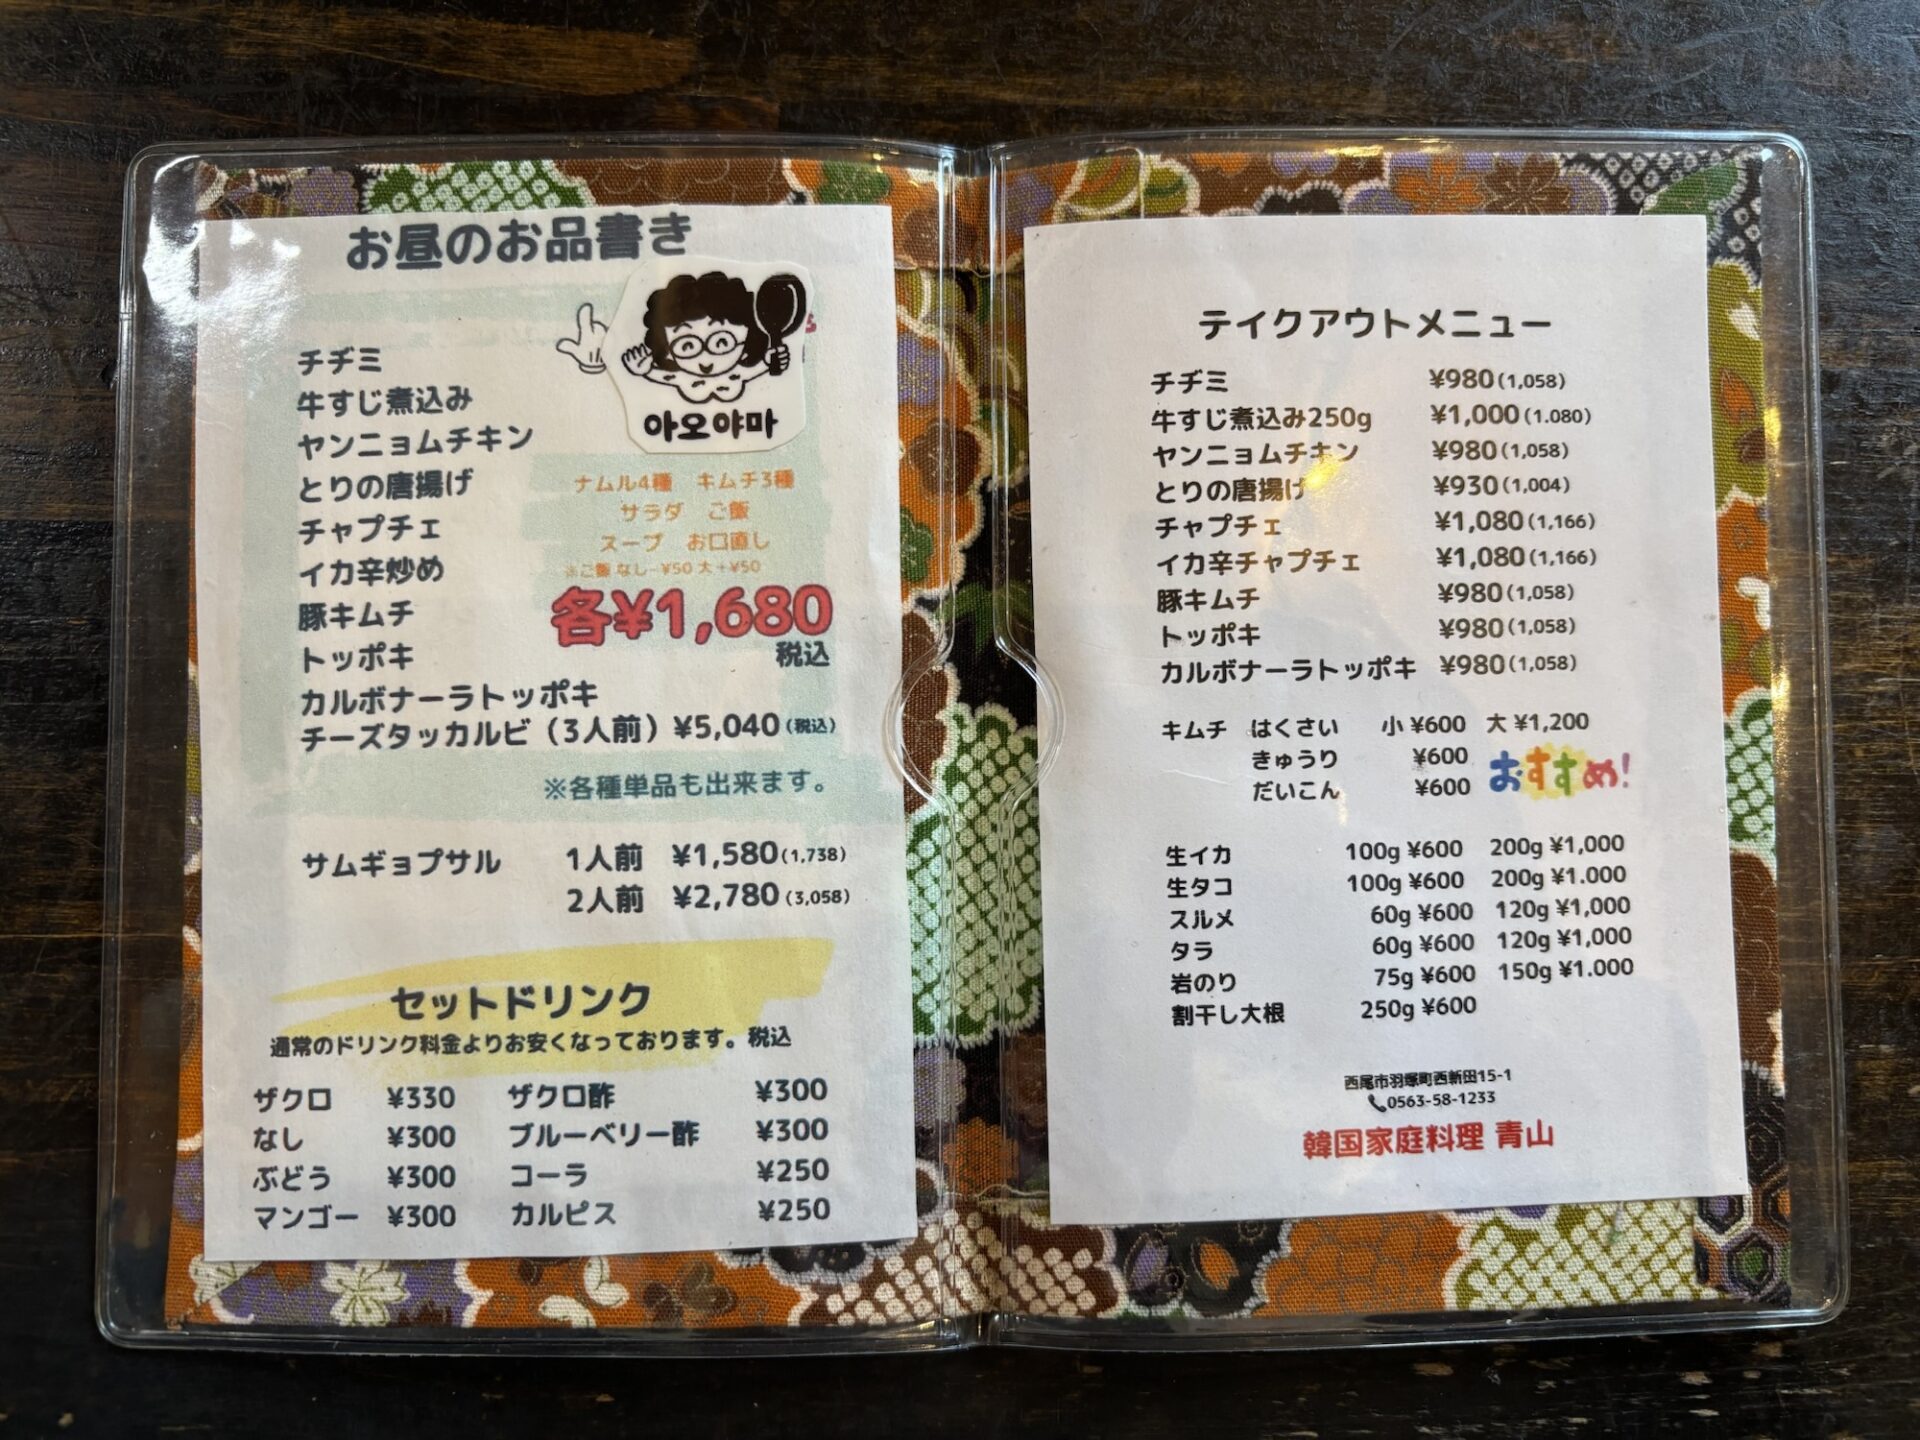 お昼のお品書き
아오야마
チヂミ
牛すじ煮込み
ヤンニョムチキン
とりの唐揚げ
チャプチェ
イカ辛炒め
豚キムチ
トッポキ
カルボナーラトッポキ
チーズタッカルビ（3人前）¥5,040（税込）
ナムル4種 キムチ3種
サラダ ご飯
スープ お口直し
※ご飯 なし-¥50 大+¥50
各¥1,680
税込
※各種単品も出来ます。
サムギョプサル 1人前 ¥1,580(1,738)
2人前 ¥2,780(3,058)
セットドリンク
通常のドリンク料金よりお安くなっております。税込
ザクロ ¥330 ザクロ酢 ¥300
なし ¥300 ブルーベリー酢 ¥300
ぶどう ¥300 コーラ ¥250
マンゴー ¥300 カルピス ¥250
テイクアウトメニュー
チヂミ ¥980(1,058)
牛すじ煮込み250g ¥1,000(1.080)
ヤンニョムチキン ¥980(1,058)
とりの唐揚げ ¥930(1,004)
チャプチェ ¥1,080(1,166)
イカ辛チャプチェ ¥1,080(1,166)
豚キムチ ¥980(1,058)
トッポキ ¥980(1,058)
カルボナーラトッポキ ¥980(1,058)
キムチ はくさい 小 ¥600 大 ¥1,200
きゅうり ¥600
だいこん ¥600
おすすめ!
生イカ 100g ¥600 200g ¥1,000
生タコ 100g ¥600 200g ¥1.000
スルメ 60g ¥600 120g ¥1,000
タラ 60g ¥600 120g ¥1,000
岩のり 75g ¥600 150g ¥1.000
割干し大根 250g ¥600
西尾市羽塚町西新田15-1
0563-58-1233
韓国家庭料理 青山